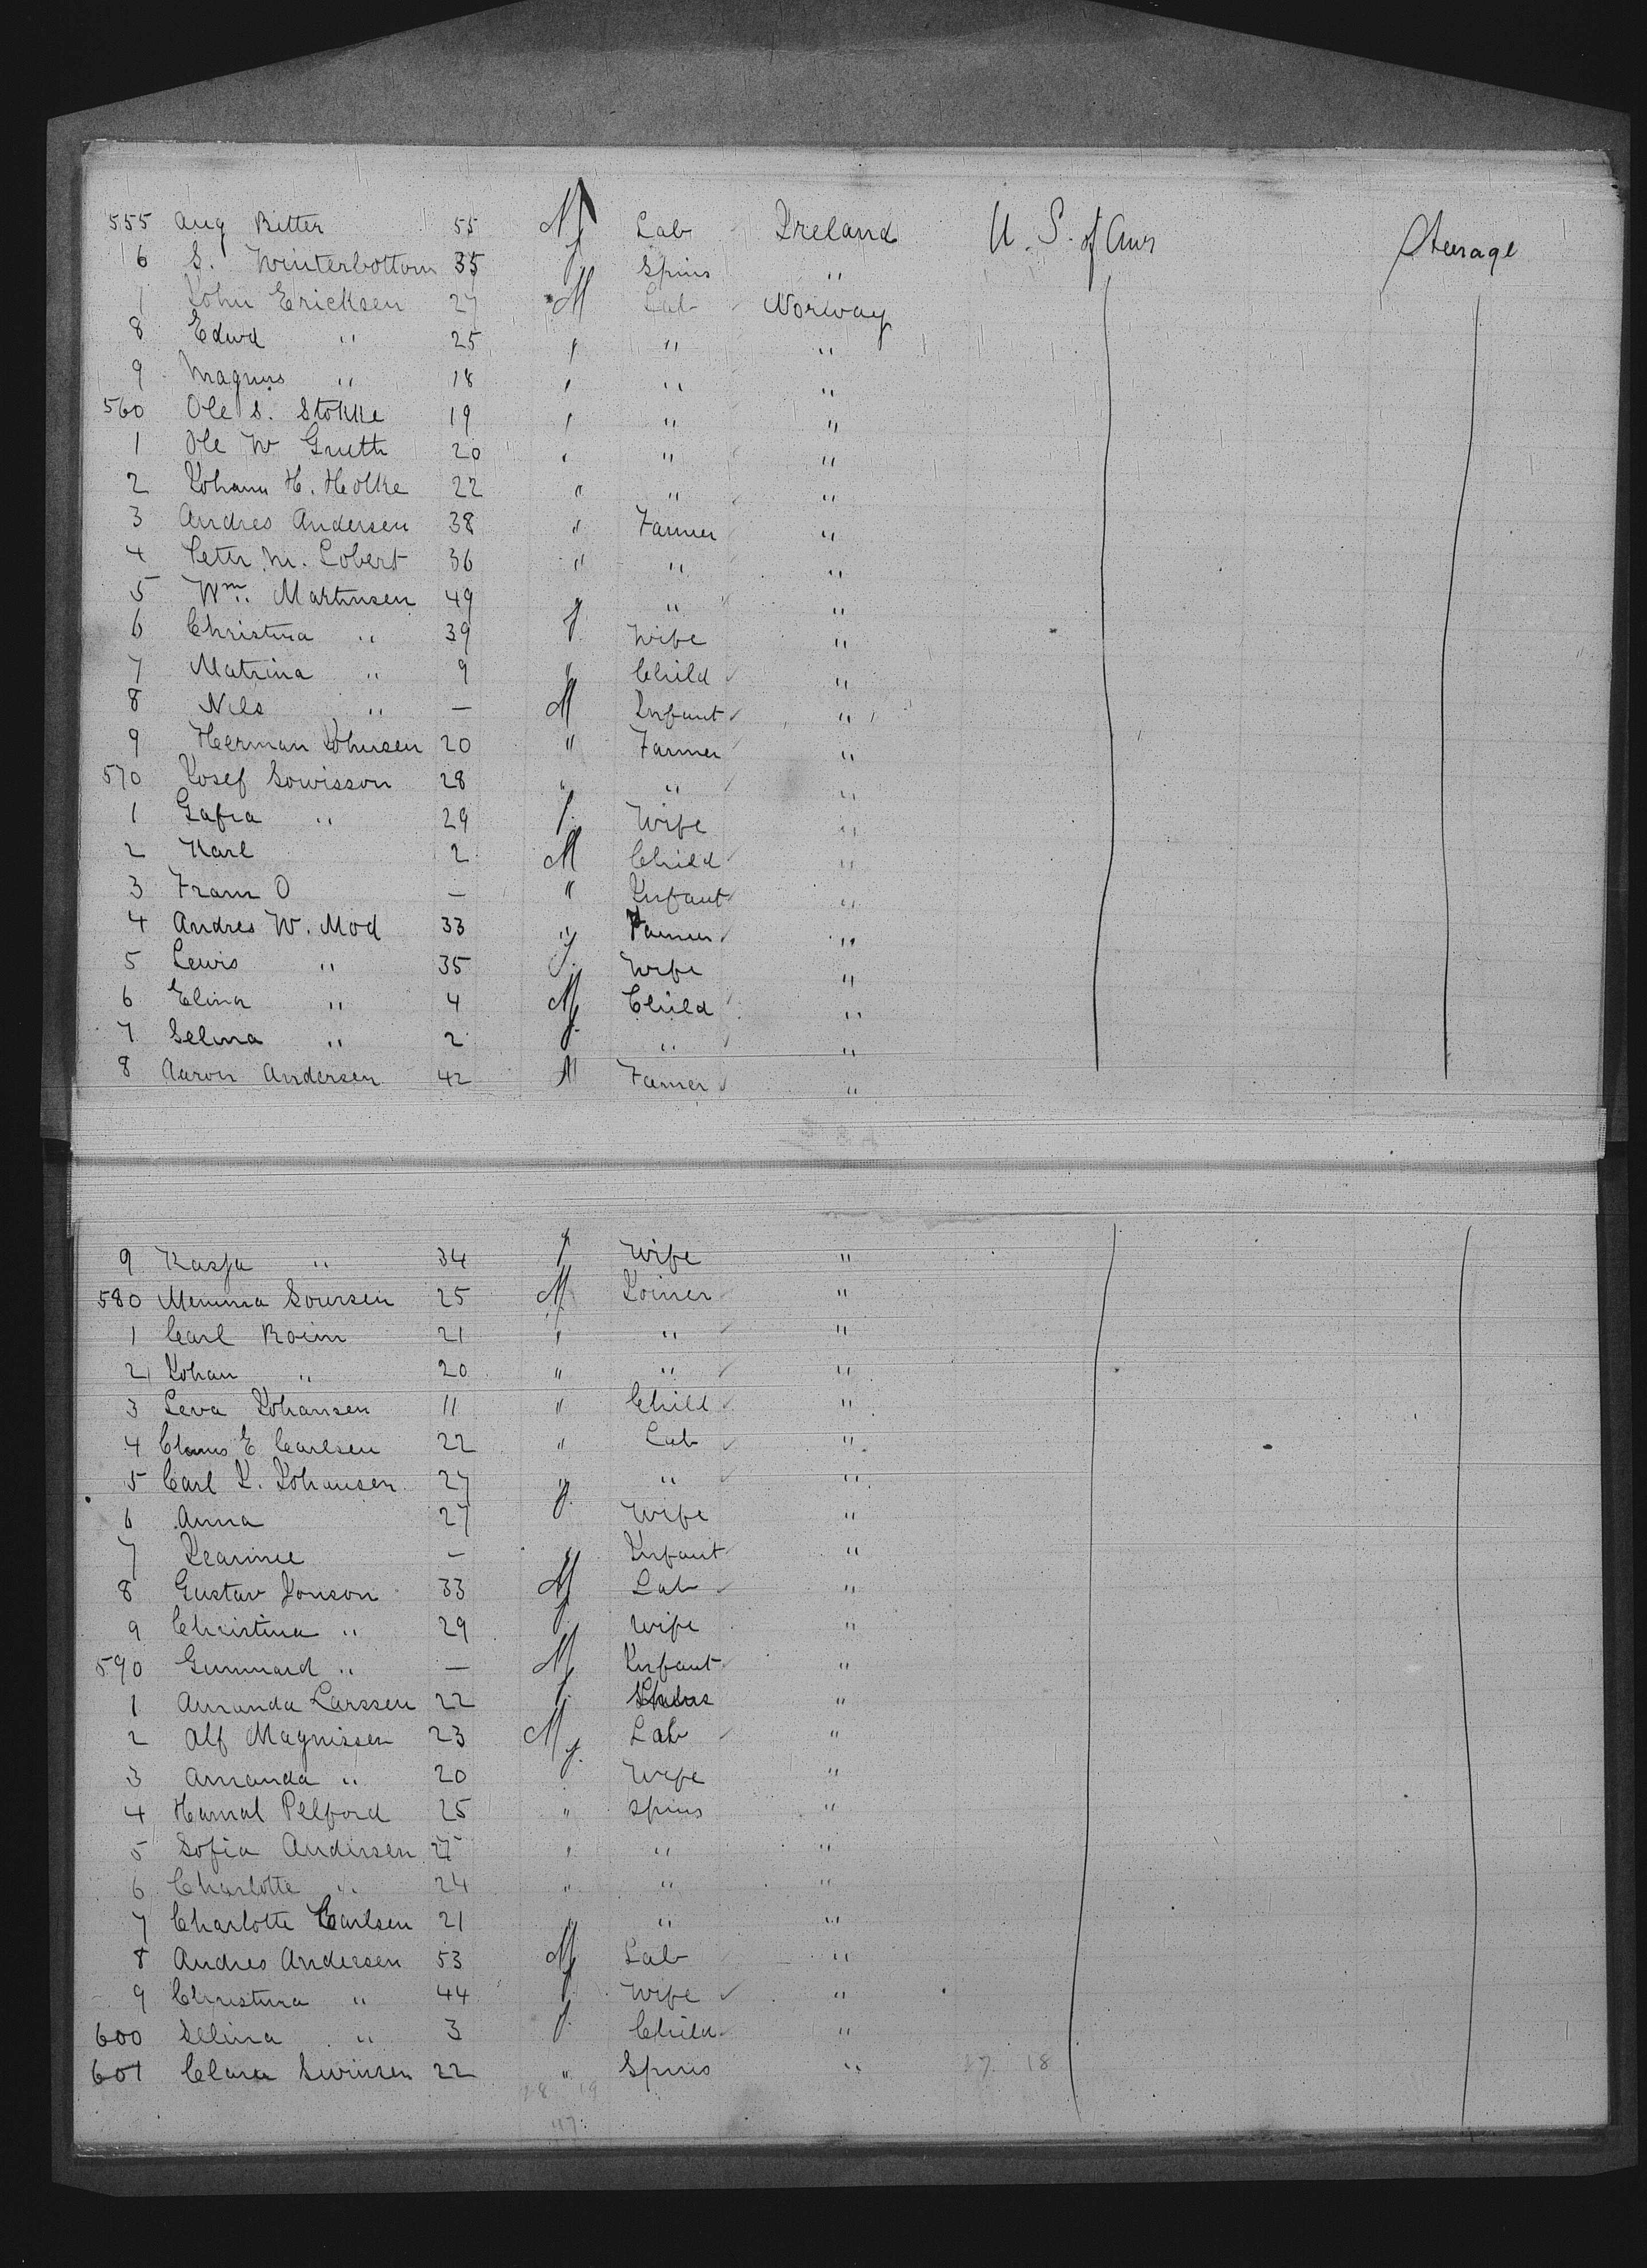 555 Aug Ritter 55 M Lab Ireland U. S. of Amr Steerage
6 S. Winterbottom 35 f Spins "
7 John Ericksen 27 M Lab Norway
8 Edwd " 25 " " "
9 Magnus " 18 " " "
560 Ole S. Stokke 19 " " "
1 Ole W 20 " " "
2 Johann H. Holke 22 " " "
3 Andres Andersen 38 " Farmer "
4 Peter M. Lobert 36 " " "
5 Wm. Martinsen 49 " " "
6 Christina " 39 f Wife "
7 Matrina " 9 " Child "
8 Nils " — M Infant "
9 Herman Johnsen 20 " Farmer "
570 Josef Sowisson 28 " " "
1 Gafra " 29 f. Wife "
2 Karl 2 M Child "
3 Fram O — " Infant "
4 Andres W. Mod 33 " Farmer "
5 Lewis " 35 f. Wife "
6 Elina " 4 M Child "
7 Selma " 2 f. " "
8 Aaron Andersen 42 M Farmer "
9 Kasja " 34 f Wife "
580 Soursen 25 M Joiner "
1 Carl Roim 21 " " "
2 Johan " 20 " " "
3 Leva Johansen 11 " Child "
4 Claus E Carlsen 22 " Lab "
5 Carl J. Johansen 27 " " "
6 Anna 27 f. Wife "
7 — " Infant "
8 Gustav Jonson 33 M Lab "
9 Christina " 29 f Wife "
590 Gunnard " — M Infant "
1 Amanda Larssen 22 f. "
2 Alf Magnissen 23 M Lab "
3 Amanda " 20 f. Wife "
4 Hamal Pelford 25 " Spins "
5 Sofia Andersen 27 " " "
6 Charlotte " 24 " " "
7 Charlotte Carlsen 21 " " "
8 Andres Andersen 53 M Lab "
9 Christina " 44 f Wife "
600 Selina " 3 f. Child "
601 Clara Swinsen 22 " Spins " 27 18
28 19
47